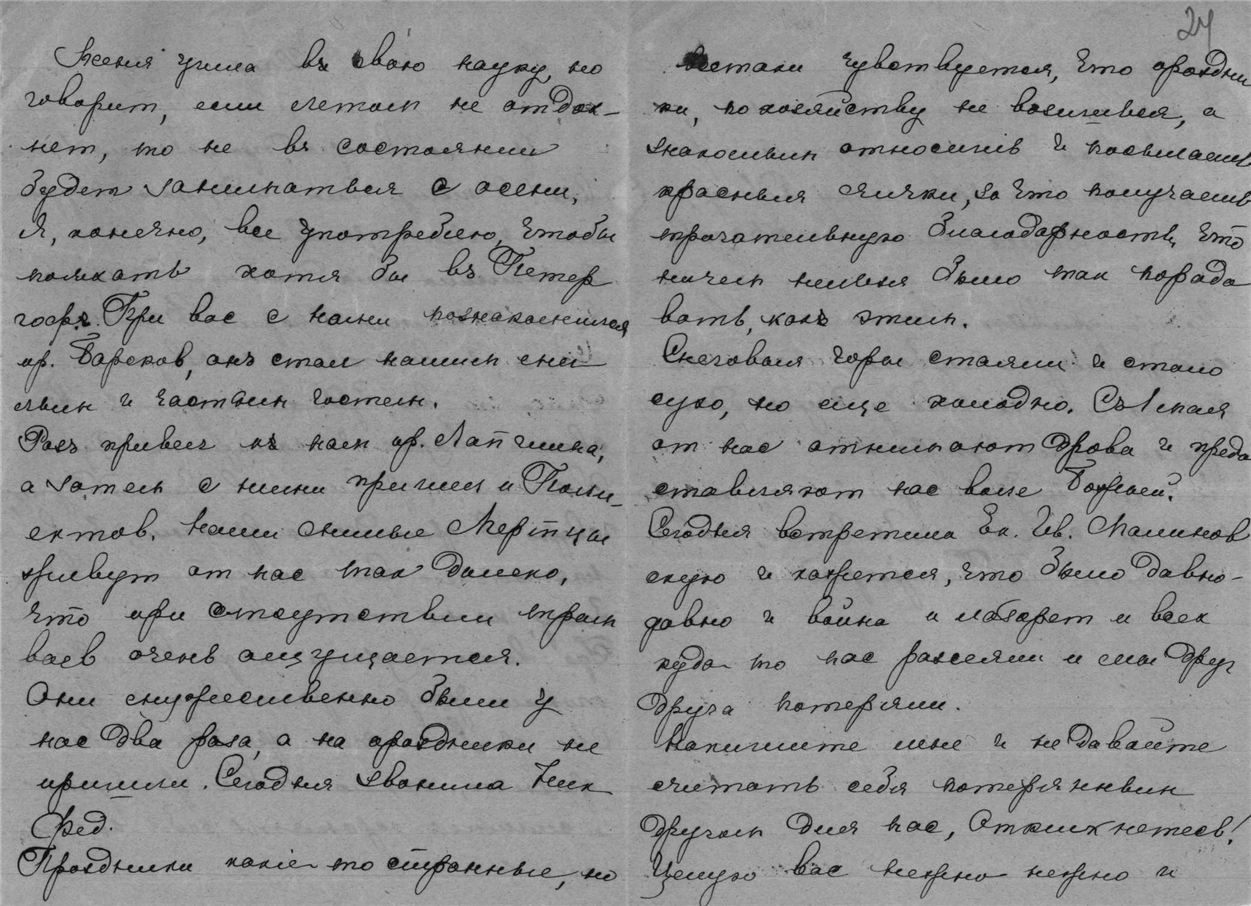 24
Женя ушла въ свою науку, но
говорит, если летом не отдох-
нет, то не въ состоянии
будет заниматься с осени.
Я, конечно, все употреблю, чтобы
поехать хотя бы въ Петер
гофъ. При вас с нами познакомился
пр. Барсков, онъ стал нашим
и частым гостем.
Разъ привел къ нам пр. Лапшина,
а затем с ними пришел и Поли-
ектов. Наши милые Мерт
живут от нас так далеко,
что при отсутствии трам
ваев очень ощущается.
Они мужественно были у
нас два раза, а на праздники не
пришли. Сегодня звонила Ник
Фед.
Праздники какие-то странные, но
всетаки чувствуется, что праздни
ки, по хозяйству не возишься, а
знакомым относишь и посылаешь
красныя яички, за что получаешь
трогательную благодарность, что
ничем нельзя было так порадо
вать, какъ этим.
Снеговыя горы стаяли и стало
сухо, но еще холодно. Съ 1 мая
от нас отнимают дрова и предо
ставляют нас воле Божьей.
Сегодня встретила Ек. Ив. Малинов
скую и кажется, что было давно-
давно и война и лазарет и всех
куда то нас разсеяли и мы друг
друга потеряли.
Напишите мне и не давайте
считать себя потерянным
другом для нас, Откликнетесь!
Целую вас нежно нежно и